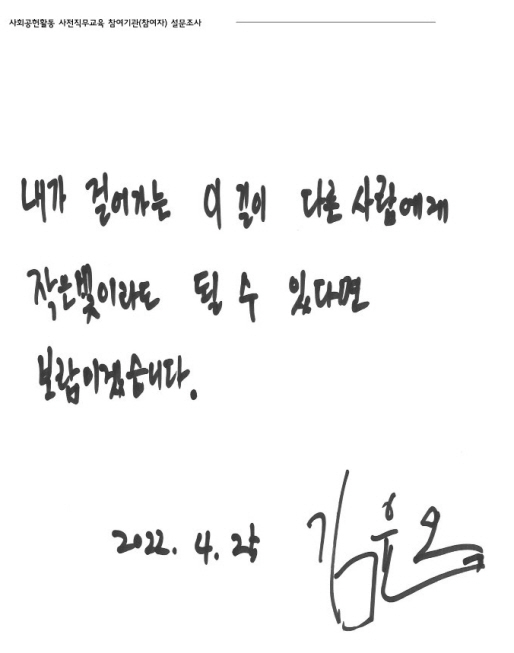 사회공헌활동 사전직무교육 참여기관(참여자) 설문조사
내가 걸어가는 이 길이 다른 사람에게
작은 빛이라도 될 수 있다면
보람이겠습니다.
2022. 4.